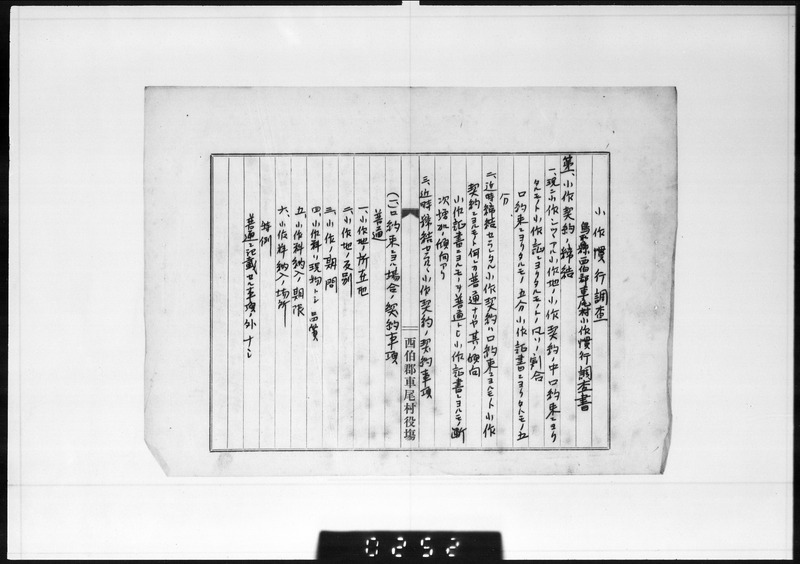 小作慣行調査
鳥取縣西伯郡車尾村小作慣行調査書
第一、小作契約ノ締結
一、現ニ小作シツツアル小作地ノ小作契約ノ中口約束ニヨリ
タルモノト小作証書ニヨリタルモノトノ凡ソノ割合
口約束ニヨリタルモノ五分小作証書ニヨリタルモノ五
分
二、近時締結セラレタル小作契約ハ口約束ニヨルモノト小作
契約ニヨルモノト何レカ普通ナリヤ其ノ傾向
小作証書ニヨルモノヲ普通トシ小作証書ニヨルモノ漸
次増加ノ傾向アリ
三、近時締結セラルル小作契約ノ契約事項
(イ)口約束ニヨル場合ノ契約事項
普通
一、小作地ノ所在地
二、小作地ノ反別
三、小作ノ期間
四、小作料ハ現物トシ品質
五、小作料納入ノ期限
六、小作料納入ノ場所
特例
普通ニ記載セル事項ノ外ナシ
西伯郡車尾村役場
0252